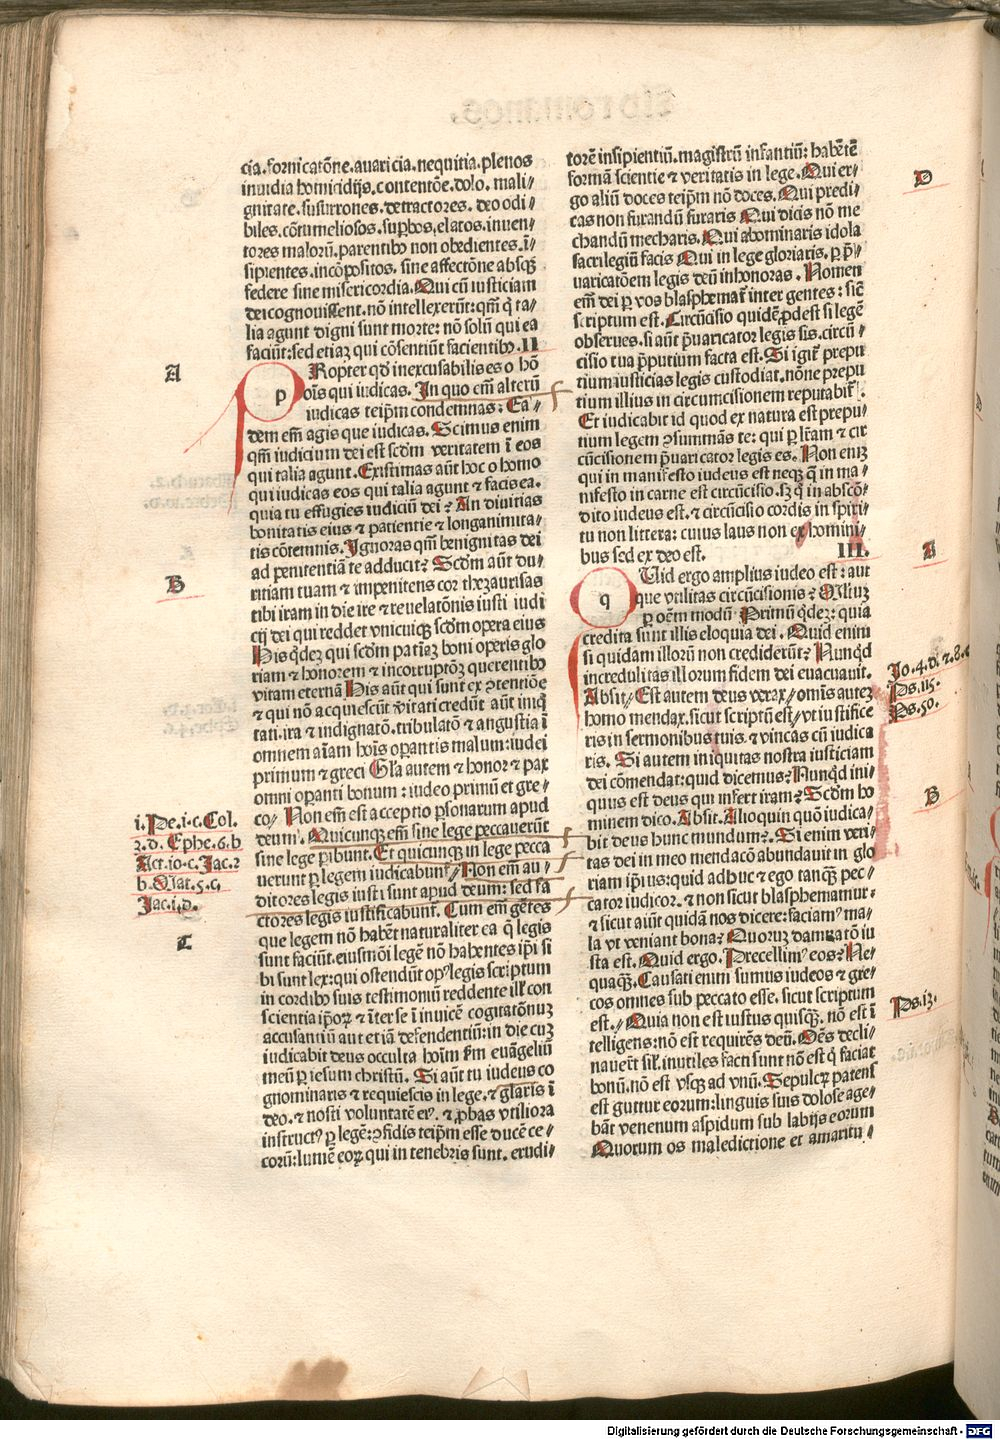 cia.fornicatōne.auaricia.nequitia.plenos
inuidia homicidijs.contentōe.dolo.mali⸗
gnitate.susurrones.detractores.deo odi⸗
biles.cōtumeliosos.suꝑbos.elatos.inuen⸗
tores malorū.parentibꝰ non obedientes.ī⸗
sipientes.incōpositos.sine affectōne absqꝫ
federe sine misericordia.Qui cū iusticiam
dei cognouissent.nō intellexerūt:qm̄ q̄ ta⸗
lia agunt digni sunt morte:nō solū qui ea
faciūt:sed etiaꝫ qui cōsentiūt facientibꝰ.II
A
PRopter qd̓ inexcusabilis es o hō
oīs qui iudicas.In quo em̄ alterū
iudicas teip̄m condemnas:Ea⸗
dem em̄ agis que iudicas.Scimus enim
qm̄ iudicium dei est scd̓m veritatem ī eos
qui talia agunt.Existimas aūt hoc o homo
qui iudicas eos qui talia agunt ⁊ facis ea.
quia tu effugies iudiciū dei? An diuitias
bonitatis eius ⁊ patientie ⁊ longanimita⸗
tis cōtemnis.Ignoras qm̄ benignitas dei
B
ad penitentiā te adducit? Scd̓m aūt du⸗
ritiam tuam ⁊ impenitens cor thezaurisas
tibi iram in die ire ⁊ reuelatōnis iusti iudi
cij dei qui reddet vnicuiqꝫ scd̓m opera eius
His qd̓eꝫ qui scd̓m patiaꝫ boni operis glo
riam ⁊ honorem ⁊ incorruptōꝫ querentibꝰ
vitam eternā His aūt qui sunt ex ꝯtentiōe
⁊ qui nō acquiescūt v̓itati credūt aūt iniq̄
tati.ira ⁊ indignatō.tribulatō ⁊ angustia ī
omnem aīam hoīs oꝑantis malum:iudei
primum ⁊ greci Gl̄a autem ⁊ honor ⁊ pax
omni oꝑanti bonum:iudeo primū et gre⸗
co. Non em̄ est acceptio ꝑsonarum apud
deum. Quicunqꝫ em̄ sine lege peccauerūt
sine lege ꝑibunt.Et quicunqꝫ in lege pecca
uerunt ꝑ legem iudicabunt̄ Non em̄ au⸗
ditores legis iusti sunt apud deum:sed fa
ctores legis iustificabunt̄. Cum em̄ gētes
i.Pe.i.c.Col.
2.d. Ephe.6.b
Act.io.c.Jac.2
b.Gal.5.c.
Jac.i.d.
C
que legem nō habēt naturaliter ea q̄ legis
sunt faciūt.eiusmōi legē nō habentes ip̄i si
bi sunt lex:qui ostendūt opꝰ legis scriptum
in cordibꝰ suis testimoniū reddente ill̓ con
scientia ip̄oꝝ ⁊ īter se ī inuicē cogitatōnuꝫ
accusantiū aut etiā defendentiū:in die cuꝫ
iudicabit deus occulta hoīm s̄m euāgeliū
meū ꝑ iesum christū. Si aūt tu iudeus co
gnominaris ⁊ requiescis in lege.⁊ glaris ī
deo.⁊ nosti voluntatē eiꝰ.⁊ ꝓbas vtiliora
instructꝰ ꝑ legē:ꝯfidis teip̄m esse ducē ce⸗
corū:lumē eoꝝ qui in tenebris sunt.erudi⸗
torē insipientiū.magistrū infantiū:habētē
D
formā scientie ⁊ veritatis in lege.Qui er⸗
go aliū doces teip̄m nō doces.Qui predi⸗
cas non furandū furaris Qui dicis nō me
chandū mecharis.Qui abominaris idola
sacrilegiū facis Qui in lege gloriaris.ꝑ p̄⸗
uaricatōem legis deū inhonoras.Nomen
em̄ dei ꝑ vos blasphemat̄ inter gentes:siē
scriptum est.Circūcisio quidē ꝓdest si legē
obserues.si aūt p̄uaricator legis sis.circū⸗
cisio tua p̄putium facta est.Si igit̄ prepu
tium iusticias legis custodiat.nōne prepu
tium illius in circumcisionem reputabit̄.
Et iudicabit id quod ex natura est prepu⸗
tium legem ꝯsummās te:qui ꝑ lr̄am ⁊ cir
cūcisionem p̄uaricator legis es. Non enim
qui in manifesto iudeus est neqꝫ q̄ in ma⸗
nifesto in carne est circūcisio.sꝫ q̄ in abscō⸗
dito iudeus est.⁊ circūcisio cordis in spiri⸗
tu non littera:cuius laus non ex homini⸗
bus sed ex deo est. III.
A
QUid ergo amplius iudeo est:aut
que vtilitas circūcisionis? Multuꝫ
ꝑ oēm modū Primū qd̓eꝫ:quia
credita sunt illis eloquia dei.Quid enim
si quidam illorū non crediderūt? Nunqd̓
incredulitas illorum fidem dei euacuauit.
Absit Est autem deus verax omnis auteꝫ
homo mendax.sicut scriptū est vt iustifice
Jo.4.d.⁊.8.
Ps.115.
Ps.50.
ris in sermonibus tuis.⁊ vincas cū iudica
ris. Si autem iniquitas nostra iusticiam
dei cōmendat:quid dicemus? Nunqd̓ ini⸗
B
quus est deus qui infert iram? Scd̓m ho
minem dico.Absit.Alioquin quō iudica⸗
bit deus hunc mundum? Si enim veri⸗
tas dei in meo mendacō abundauit in glo
riam ip̄ius:quid adhuc ⁊ ego tanqꝫ pec⸗
cator iudicor.⁊ non sicut blasphemamur:
⁊ sicut aiūt quidā nos dicere:faciamꝰ ma⸗
la vt veniant bona? Quoruꝫ damnatō iu
sta est.Quid ergo.Precellimꝰ eos? Ne⸗
quaqꝫ.Causati enim sumus iudeos ⁊ gre⸗
cos omnes sub peccato esse.sicut scriptum
Ps.13.
est. Quia non est iustus quisqꝫ.nō est ī
telligens:nō est requirēs deū. Oēs decli⸗
nauerūt sil̓.inutiles facti sunt nō est q̄ faciat
bonū.nō est vsqꝫ ad vnū.Sepulcꝝ patens
est guttur eorum:linguis suis dolose age⸗
bāt venenum aspidum sub labijs eorum
Quorum os maledictione et amaritu⸗
Digitalisierung gefördert durch die Deutsche Forschungsgemeinschaft - DFG